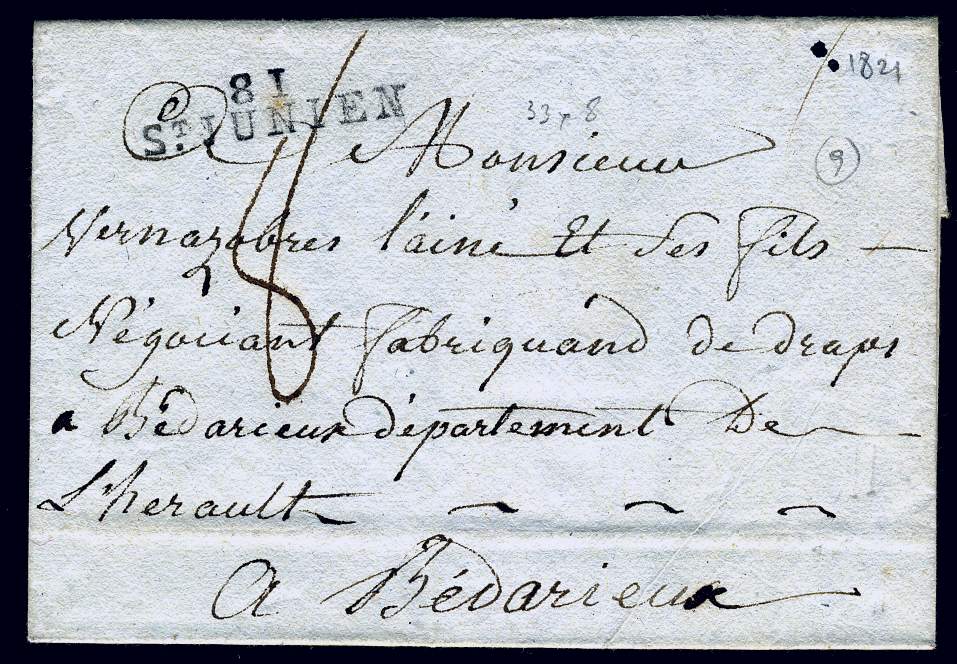 81
ST JUNIEN
1821
33 8
9
A Monsieur
8
Vernazobres l'ainé Et Ses fils
Négociant fabriquand de draps
a Bédarieux département De
L'herault
a Bédarieux